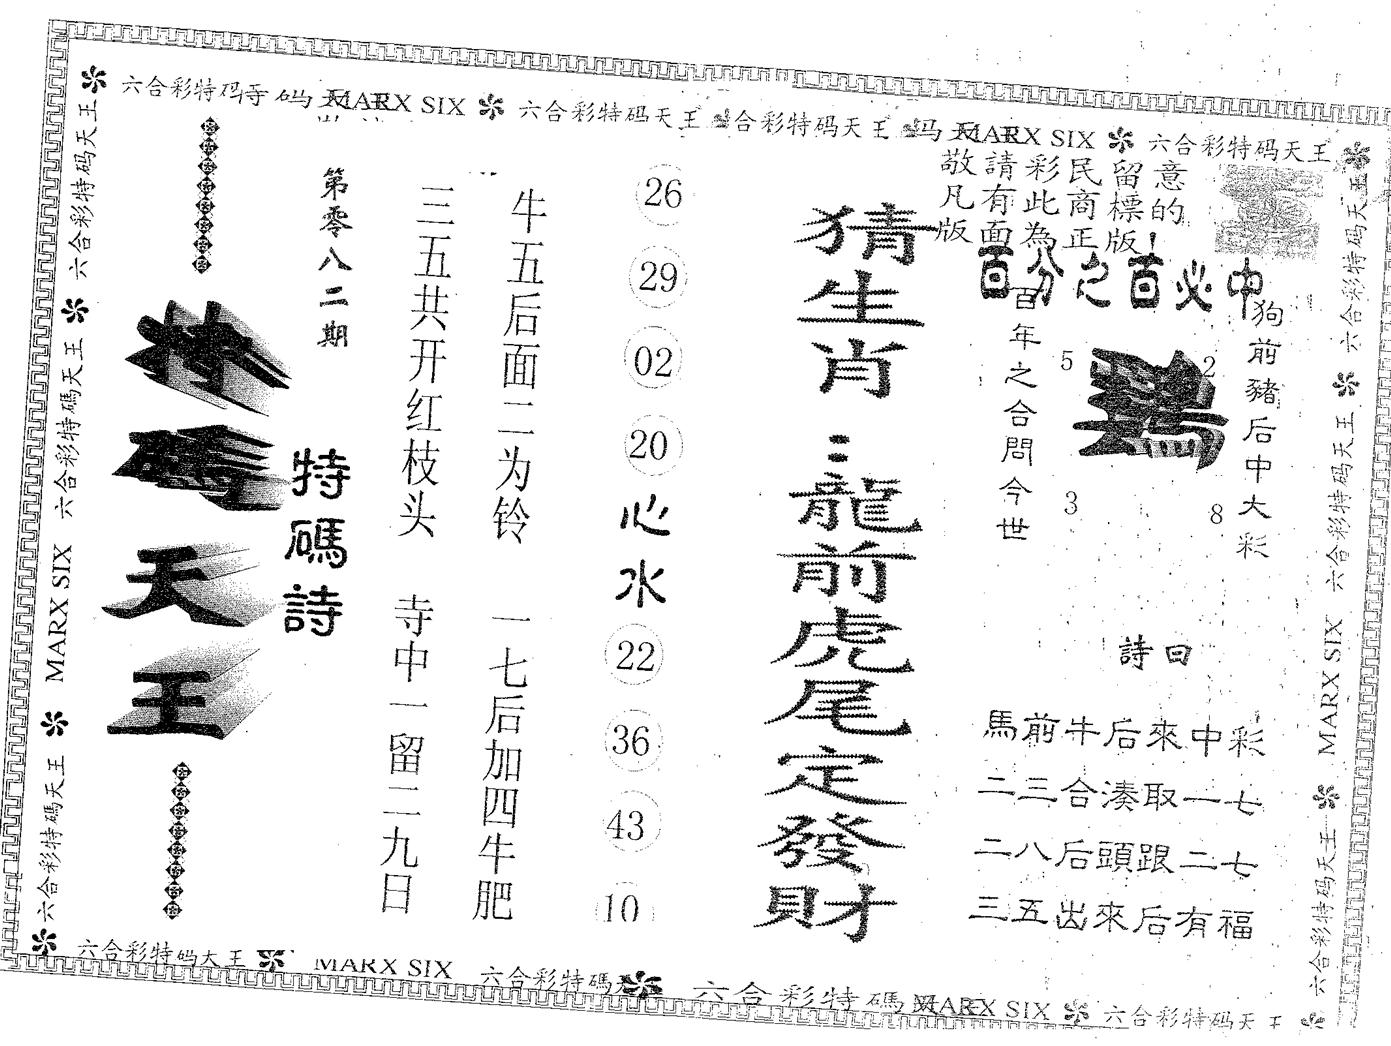 六合彩特码
MARX SIX
六合彩特码天王
合彩特码天王
MARX SIX
六合彩特码天王
敬請彩民留意
凡有此商標的
版面為正版！
百分之百必中
狗前豬后中大彩
百年之合問今世
5
2
3
8
詩曰
馬前牛后來中彩
二三合湊取一七
二八后頭跟二七
三五出來后有福
猜生肖:龍前虎尾定發財
26
29
02
20
心水
22
36
43
10
牛五后面二为铃
一七后加四牛肥
三五共开红枝头
寺中一留二九日
第零八二期
特碼詩
特碼天王
六合彩特码天王
六合彩特碼天王
MARX SIX
六合彩特碼天王
六合彩特码天王
六合彩特碼天王
MARX SIX
六合彩特码天王
六合彩特码大王
MARX SIX
六合彩特碼
六合彩特碼
MARX SIX
六合彩特码天王